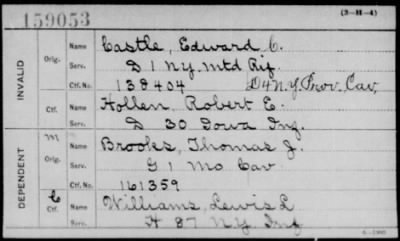 159053
(3-H-4)
INVALID
Orig.
Name Castle, Edward C.
Serv. D 1 N.Y. Mtd Rif.
Ctf. No. 138404 D 4 N.Y. Prov. Cav.
Ctf.
Name Hollen, Robert E.
Serv. D 30 Iowa Inf.
DEPENDENT
M
Orig.
Name Brooks, Thomas J.
Serv. G 1 Mo Cav
Ctf. No. 161359
C
Ctf.
Name Williams, Lewis L
Serv. H 87 N.Y. Inf